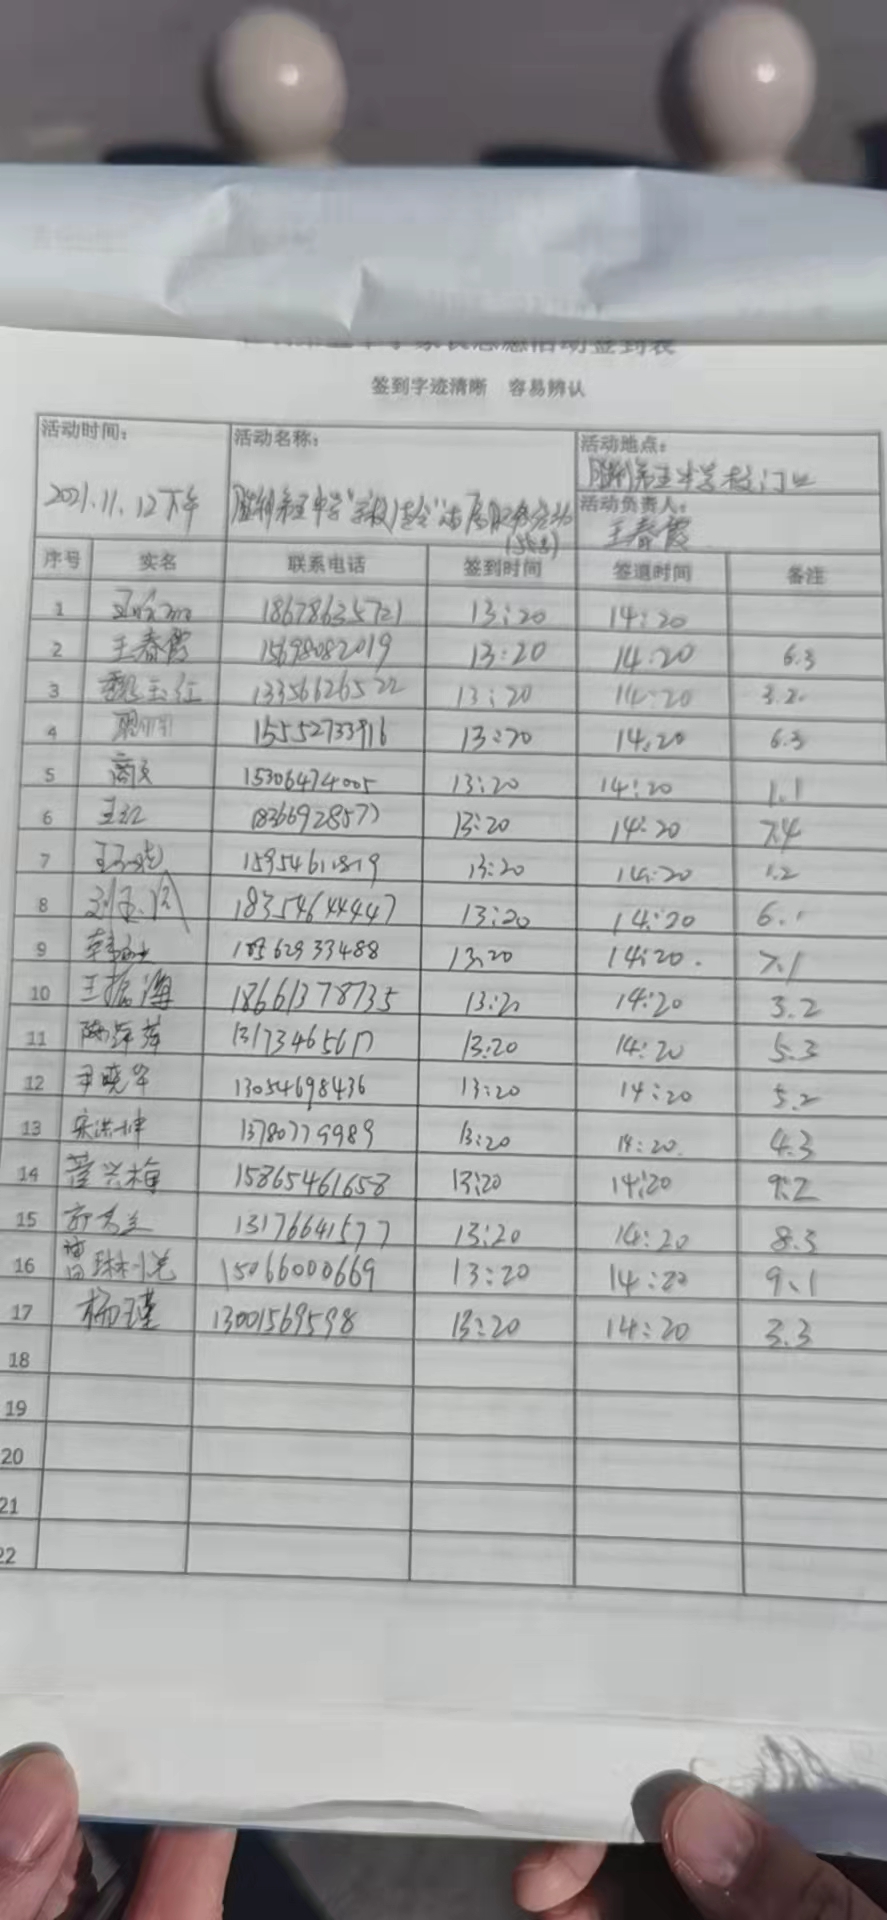 活动签到表
签到字迹清晰 容易辨认
活动时间: 活动名称: 活动地点:
2021.11.12下午 胜利第五中学 胜利第五中学校门口
活动负责人:
王春霞
序号 实名 联系电话 签到时间 签退时间 备注
1 18678635721 13:20 14:20
2 王春霞 15698082019 13:20 14:20 6.3
3 魏玉红 13356626522 13:20 14:20 3.2
4 15552733916 13:20 14:20 6.3
5 15306474005 13:20 14:20 1.1
6 王红 18366928577 13:20 14:20 7.4
7 13:20 14:20 1.2
8 18354644447 13:20 14:20 6.1
9 18562933488 13:20 14:20. 7.1
10 王振海 18661378735 13:20 14:20 3.2
11 13:20 14:20 5.3
12 尹晓军 13054698436 13:20 14:20 5.2
13 宋洪坤 13780779989 13:20 14:20. 4.3
14 董兴梅 15865461658 13:20 14:20 9.2
15 13176641577 13:20 14:20 8.3
16 15066000669 13:20 14:20 9.1
17 杨瑾 13001569598 13:20 14:20 3.3
18
19
20
21
22